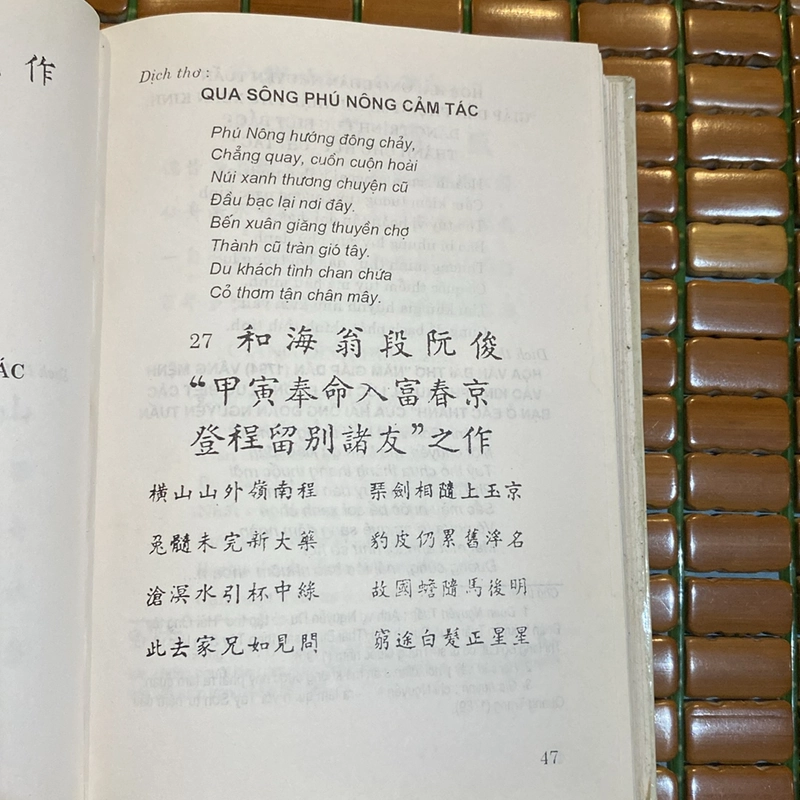 作
ÁC
Dịch thơ :
QUA SÔNG PHÚ NÔNG CẢM TÁC
Phú Nông hướng đông chảy,
Chẳng quay, cuồn cuộn hoài
Núi xanh thương chuyện cũ
Đầu bạc lại nơi đây.
Bến xuân giăng thuyền chợ
Thành cũ tràn gió tây.
Du khách tình chan chứa
Cỏ thơm tận chân mây.
27 和海翁段阮俊
“甲寅奉命入富春京
登程留別諸友”之作
橫山山外嶺南程 琴劍相隨上玉京
兔髓未完新大藥 豹皮仍累舊浮名
滄溟水引杯中綠 故國蟾隨馬後明
此去家兄如見問 窮途白髮正星星
47